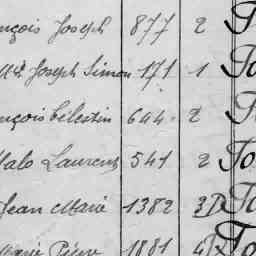 nçois Joseph 877 2
Joseph Simon 171 1 To
nçois Célestin 644 2
Malo Laurent 541 2 To
Jean Marie 1382 3 To
Marie Pierre 1881 4 To